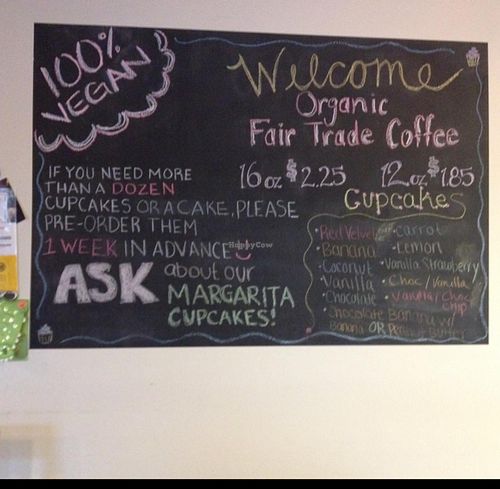 100%
VEGAN
Welcome
Organic
Fair Trade Coffee
16oz $2.25 12oz $1.85
IF YOU NEED MORE
THAN A DOZEN
CUPCAKES OR A CAKE, PLEASE
PRE-ORDER THEM
1 WEEK IN ADVANCE
ASK about our
MARGARITA
CUPCAKES!
Cupcakes
• Red Velvet
• Banana
• Coconut
• Vanilla
• Chocolate
• Carrot
• Lemon
• Vanilla Strawberry
• Choc / Vanilla
• Vanilla / Choc Chip
• Chocolate Banana w/
Banana OR Peanut Butter
HappyCow